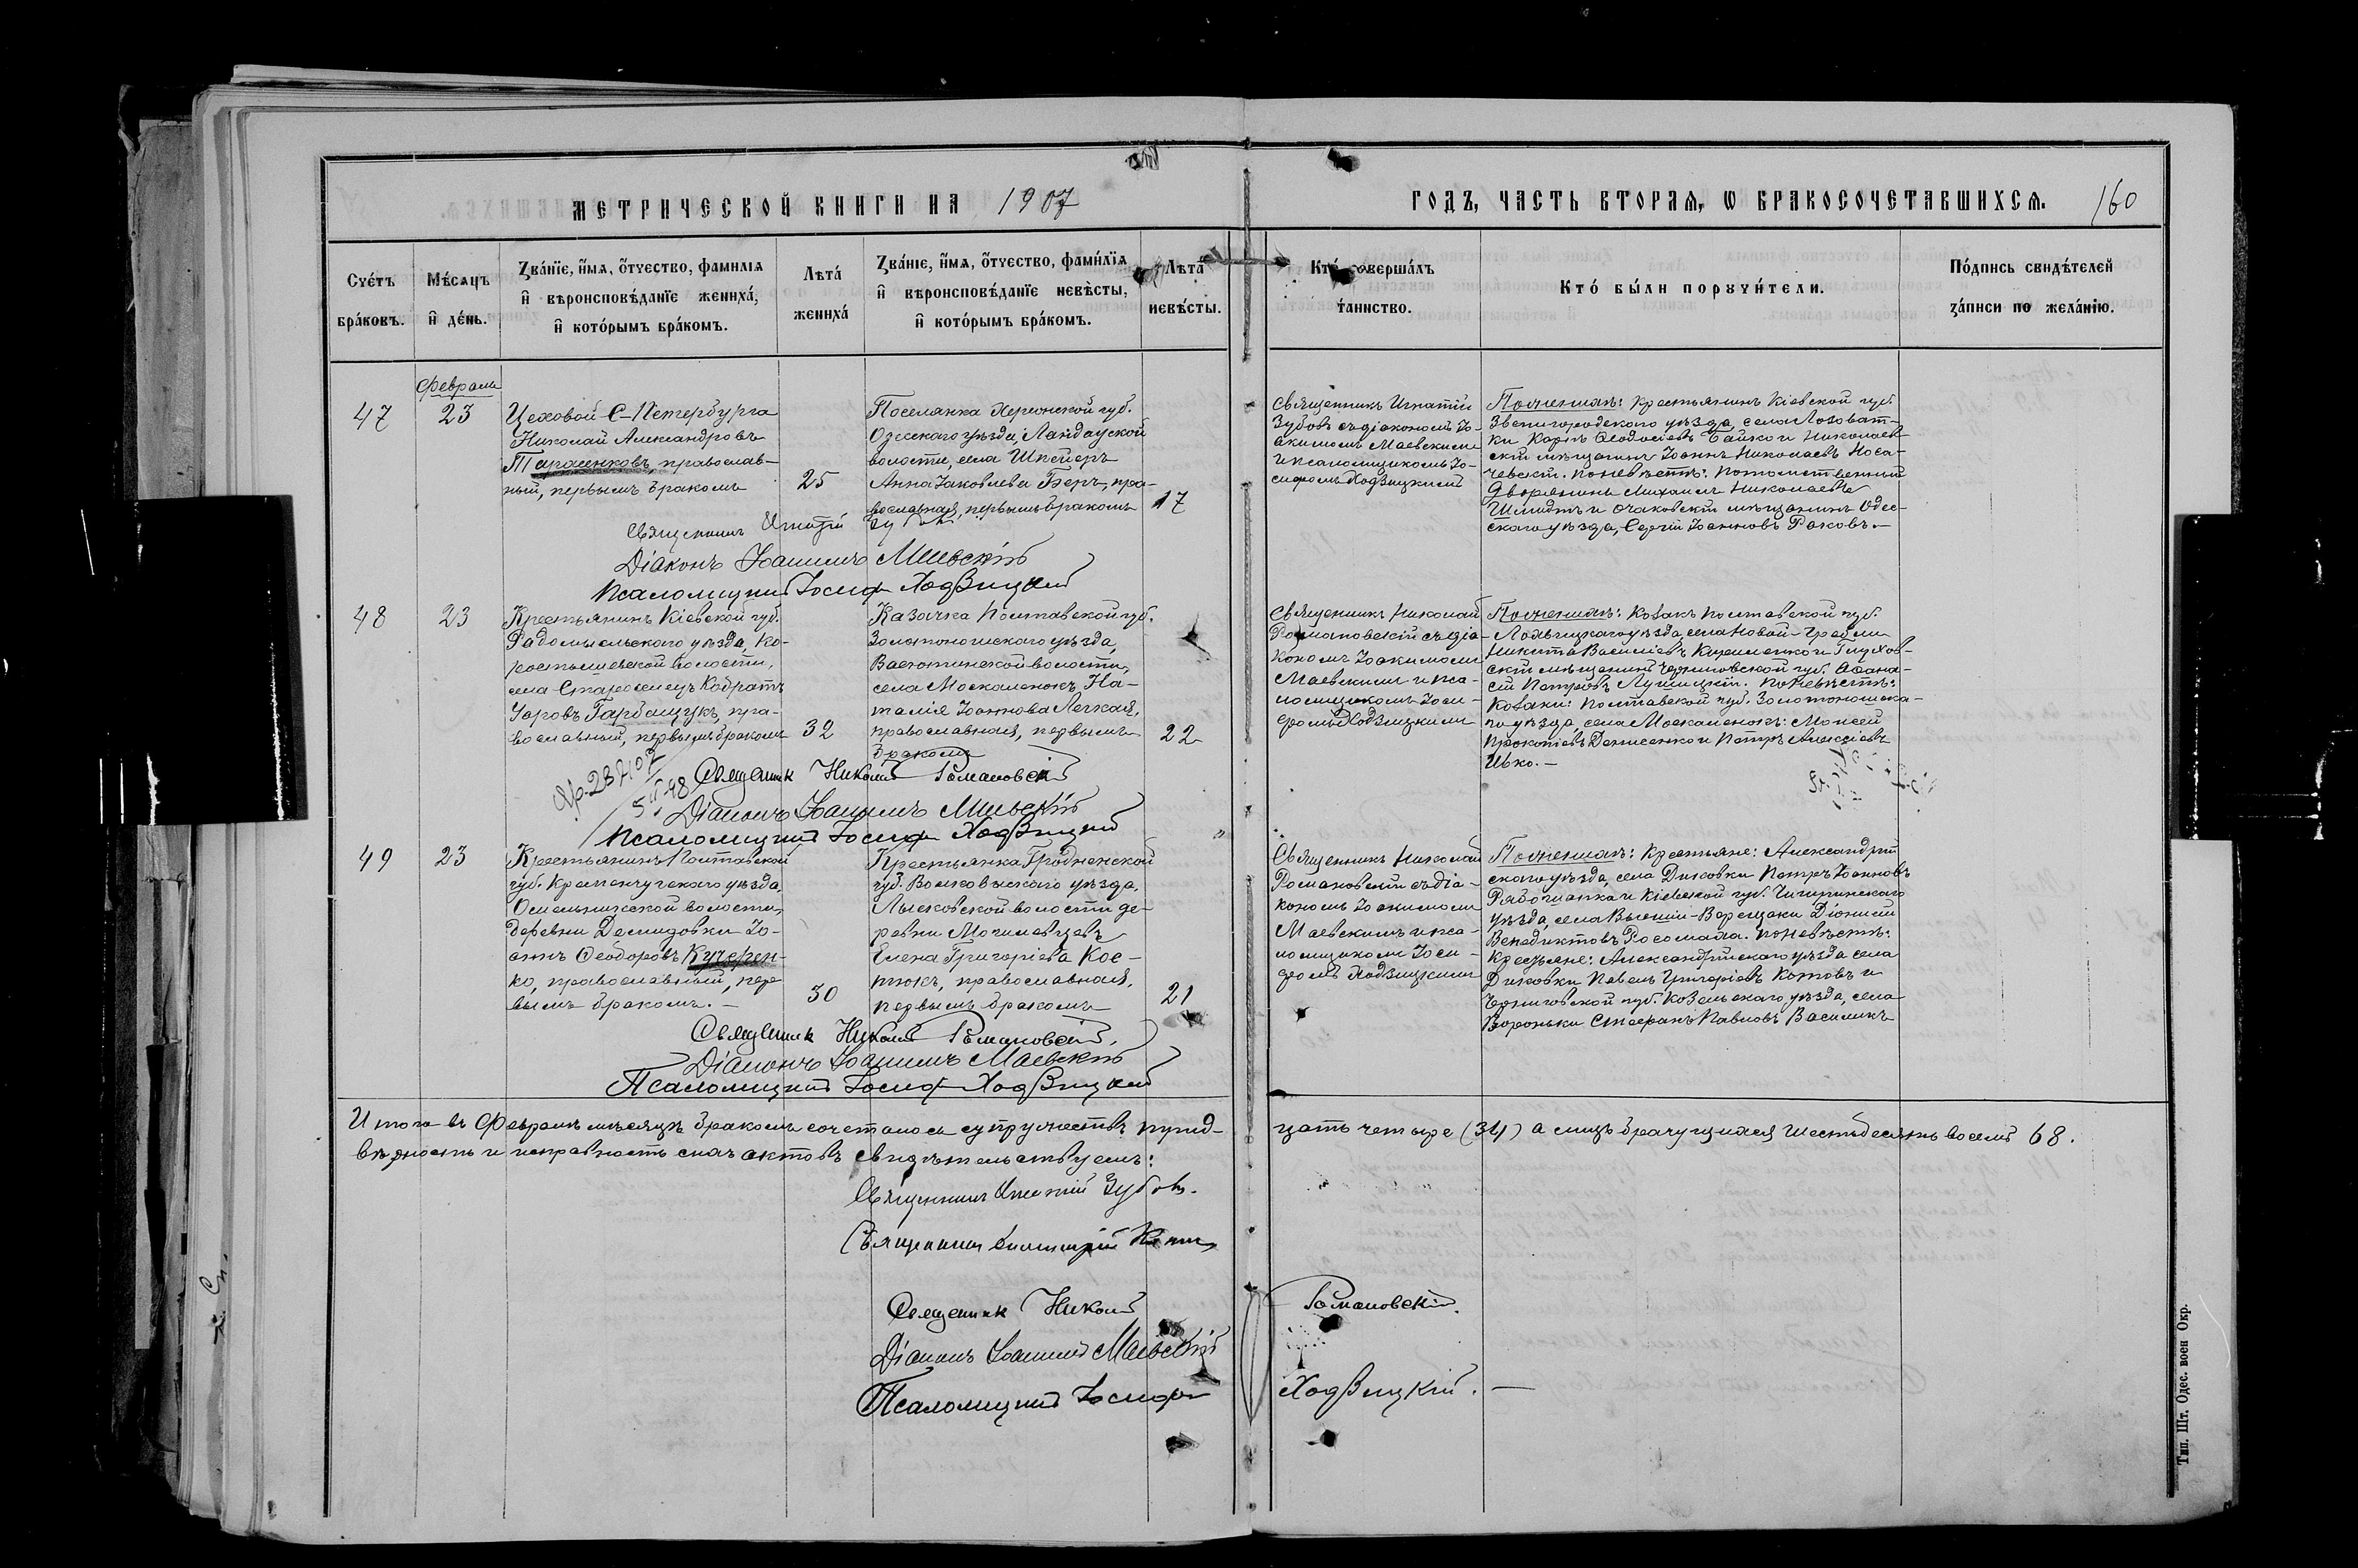 МЕТРИЧЕСКОЙ КНИГИ НА 1907
ГОДЪ, ЧАСТЬ ВТОРАЯ, Ѡ БРАКОСОЧЕТАВШИХСЯ. 160
Счетъ браковъ.
Мѣсяцъ и день.
Званіе, имя, отчество, фамилія
и вѣроисповѣданіе жениха,
и которымъ бракомъ.
Лѣта
жениха
Званіе, имя, отчество, фамилія
и вѣроисповѣданіе невѣсты,
и которымъ бракомъ.
Лѣта
невѣсты.
Кто совершалъ
таинство.
Кто были поручители.
Подпись свидѣтелей
записи по желанію.
Февраль
47
23
Цеховой С-Петербурга
Николай Александровъ
Тарасенковъ, православ-
ный, первымъ бракомъ
25
Поселянка Херсонской губ.
Одесскаго уѣзда, Ландауской
волости, села Шпейеръ
Анна Іаковлева Беръ, пра-
вославная, первымъ бракомъ
17
Священникъ Игнатій
Зубовъ съ діакономъ Іо-
акимомъ Маевскимъ
и псаломщикомъ Іо-
сифомъ Ходзицкимъ
По женихѣ: крестьянинъ Кіевской губ.
Звенигородскаго уѣзда, села Лозоват-
ки Карпъ Ѳеодосіевъ Байко и Николаев-
скій мѣщанинъ Іоаннъ Николаевъ Носа-
чевскій. По невѣстѣ: потомственный
дворянинъ Михаилъ Николаевъ
Шмидтъ и Очаковскій мѣщанинъ Одес-
скаго уѣзда, Сергій Іоанновъ Раковъ.—
Священникъ Игнатій Зубовъ
Діаконъ Іоакимъ Маевскій
Псаломщикъ Іосифъ Ходзицкій
48
23
Крестьянинъ Кіевской губ.
Радомысльского уѣзда, Ко-
ростышевской волости,
села Старосельцъ Кодратъ
Уаровъ Гарбащукъ, пра-
вославный, первымъ бракомъ
32
Казачка Полтавской губ.
Золотоношскаго уѣзда,
волости,
села Москаленокъ, На-
талія Іоаннова Легкая,
православная, первымъ
бракомъ
22
Священникъ Николай
Романовскій съ діа-
кономъ Іоакимомъ
Маевскимъ и пса-
ломщикомъ Іоси-
фомъ Ходзицкимъ
По женихѣ: козакъ Полтавской губ.
Лохвицкаго уѣзда, села Новой-Гребли
Никита Василіевъ и Глухов-
скій мѣщанинъ Черниговской губ. Аѳана-
сій Петровъ. По невѣстѣ:
козаки: Полтавской губ. Золотоношска-
го уѣзда, села Москаленокъ: Моисей
Прокопіевъ Денисенко и Петръ Алексіевъ
Ивко.—
Священник Николай Романовскій
Діаконъ Іоакимъ Маевскій
Псаломщикъ Іосифъ Ходзицкій
49
23
Крестьянинъ Полтавской
губ. Кременчугскаго уѣзда,
Омельникской волости,
деревни Демидовки Іо-
аннъ Ѳеодоровъ Кучерен-
ко, православный, пер-
вымъ бракомъ.—
30
Крестьянка Гродненской
губ. Волковыскаго уѣзда,
Лысковской волости де-
ревни Могилевцевъ
Елена Григоріева Кос-
тюкъ, православная,
первымъ бракомъ
21
Священникъ Николай
Романовскій съ діа-
кономъ Іоакимомъ
Маевскимъ и пса-
ломщикомъ Іоси-
фомъ Ходзицкимъ
По женихѣ: крестьяне: Александрій-
скаго уѣзда, села Диковки Петръ Іоанновъ
и Кіевской губ. Чигиринскаго
уѣзда, села Діонисій
Венедиктовъ Росомаха. По невѣстѣ:
крестьяне: Александрійскаго уѣзда села
Диковки Павелъ Григоріевъ Котовъ и
Черниговской губ. Козельскаго уѣзда, села
Вороньки Стефанъ Павловъ Василикъ
Священник Николай Романовскій.
Діаконъ Іоакимъ Маевскій
Псаломщикъ Іосифъ Ходзицкій
Итого въ Февралѣ мѣсяцѣ бракомъ сочеталось супружествъ трид-
цать четыре (34) а лицъ брачущихся шестьдесятъ восемь 68.
вѣрность и исправность сихъ актовъ свидѣтельствуемъ:
Священникъ Игнатій Зубовъ.
Священникъ
Священник Николай Романовскій.
Діаконъ Іоакимъ Маевскій
Псаломщикъ Іосифъ Ходзицкій.—
Тип. Шт. Одес. воен Окр.